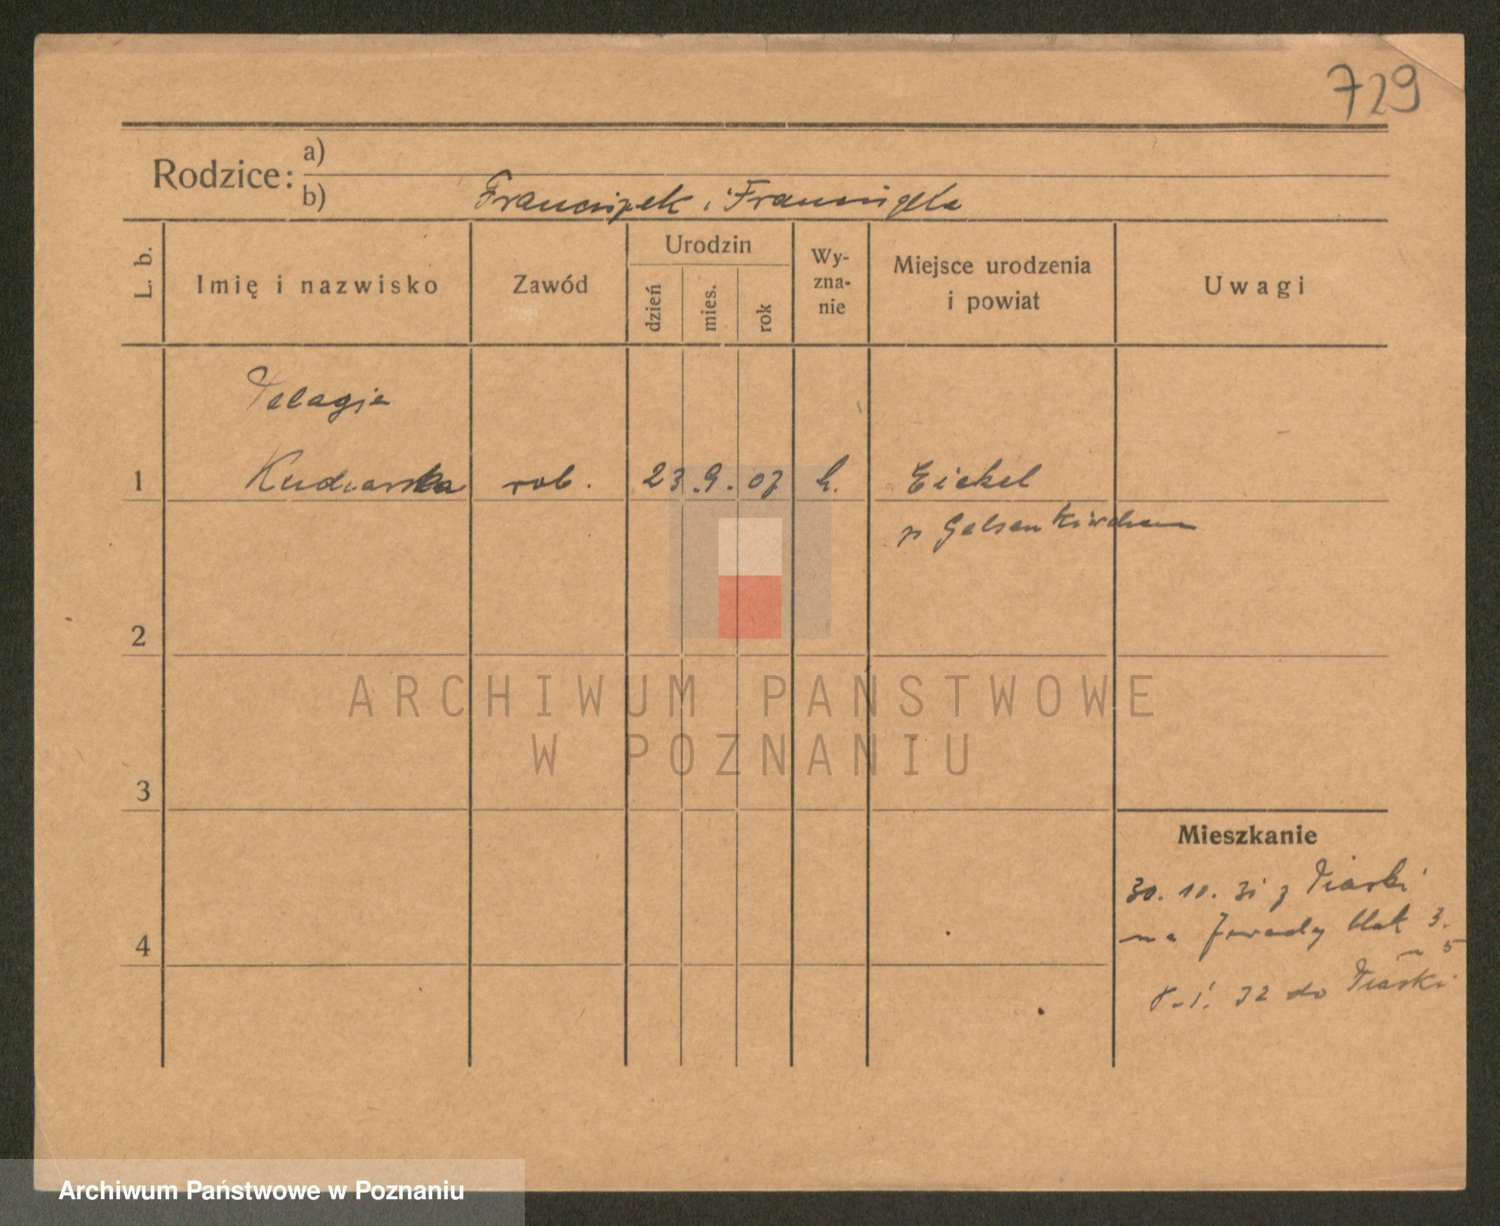 729
Rodzice:
a)
b) Franciszek i Franciszka
L. b.
Imię i nazwisko
Zawód
Urodzin
dzień
mies.
rok
Wy-
zna-
nie
Miejsce urodzenia
i powiat
Uwagi
Pelagja
1 Kudrarska rob. 23. 9. 07 k. Eickel
p Gelsenkirchen
2
3
4
ARCHIWUM PAŃSTWOWE
W POZNANIU
Mieszkanie
30. 10. 31 z Piaski
na blok 3.
5
8. 1. 32 do Piaski
Archiwum Państwowe w Poznaniu